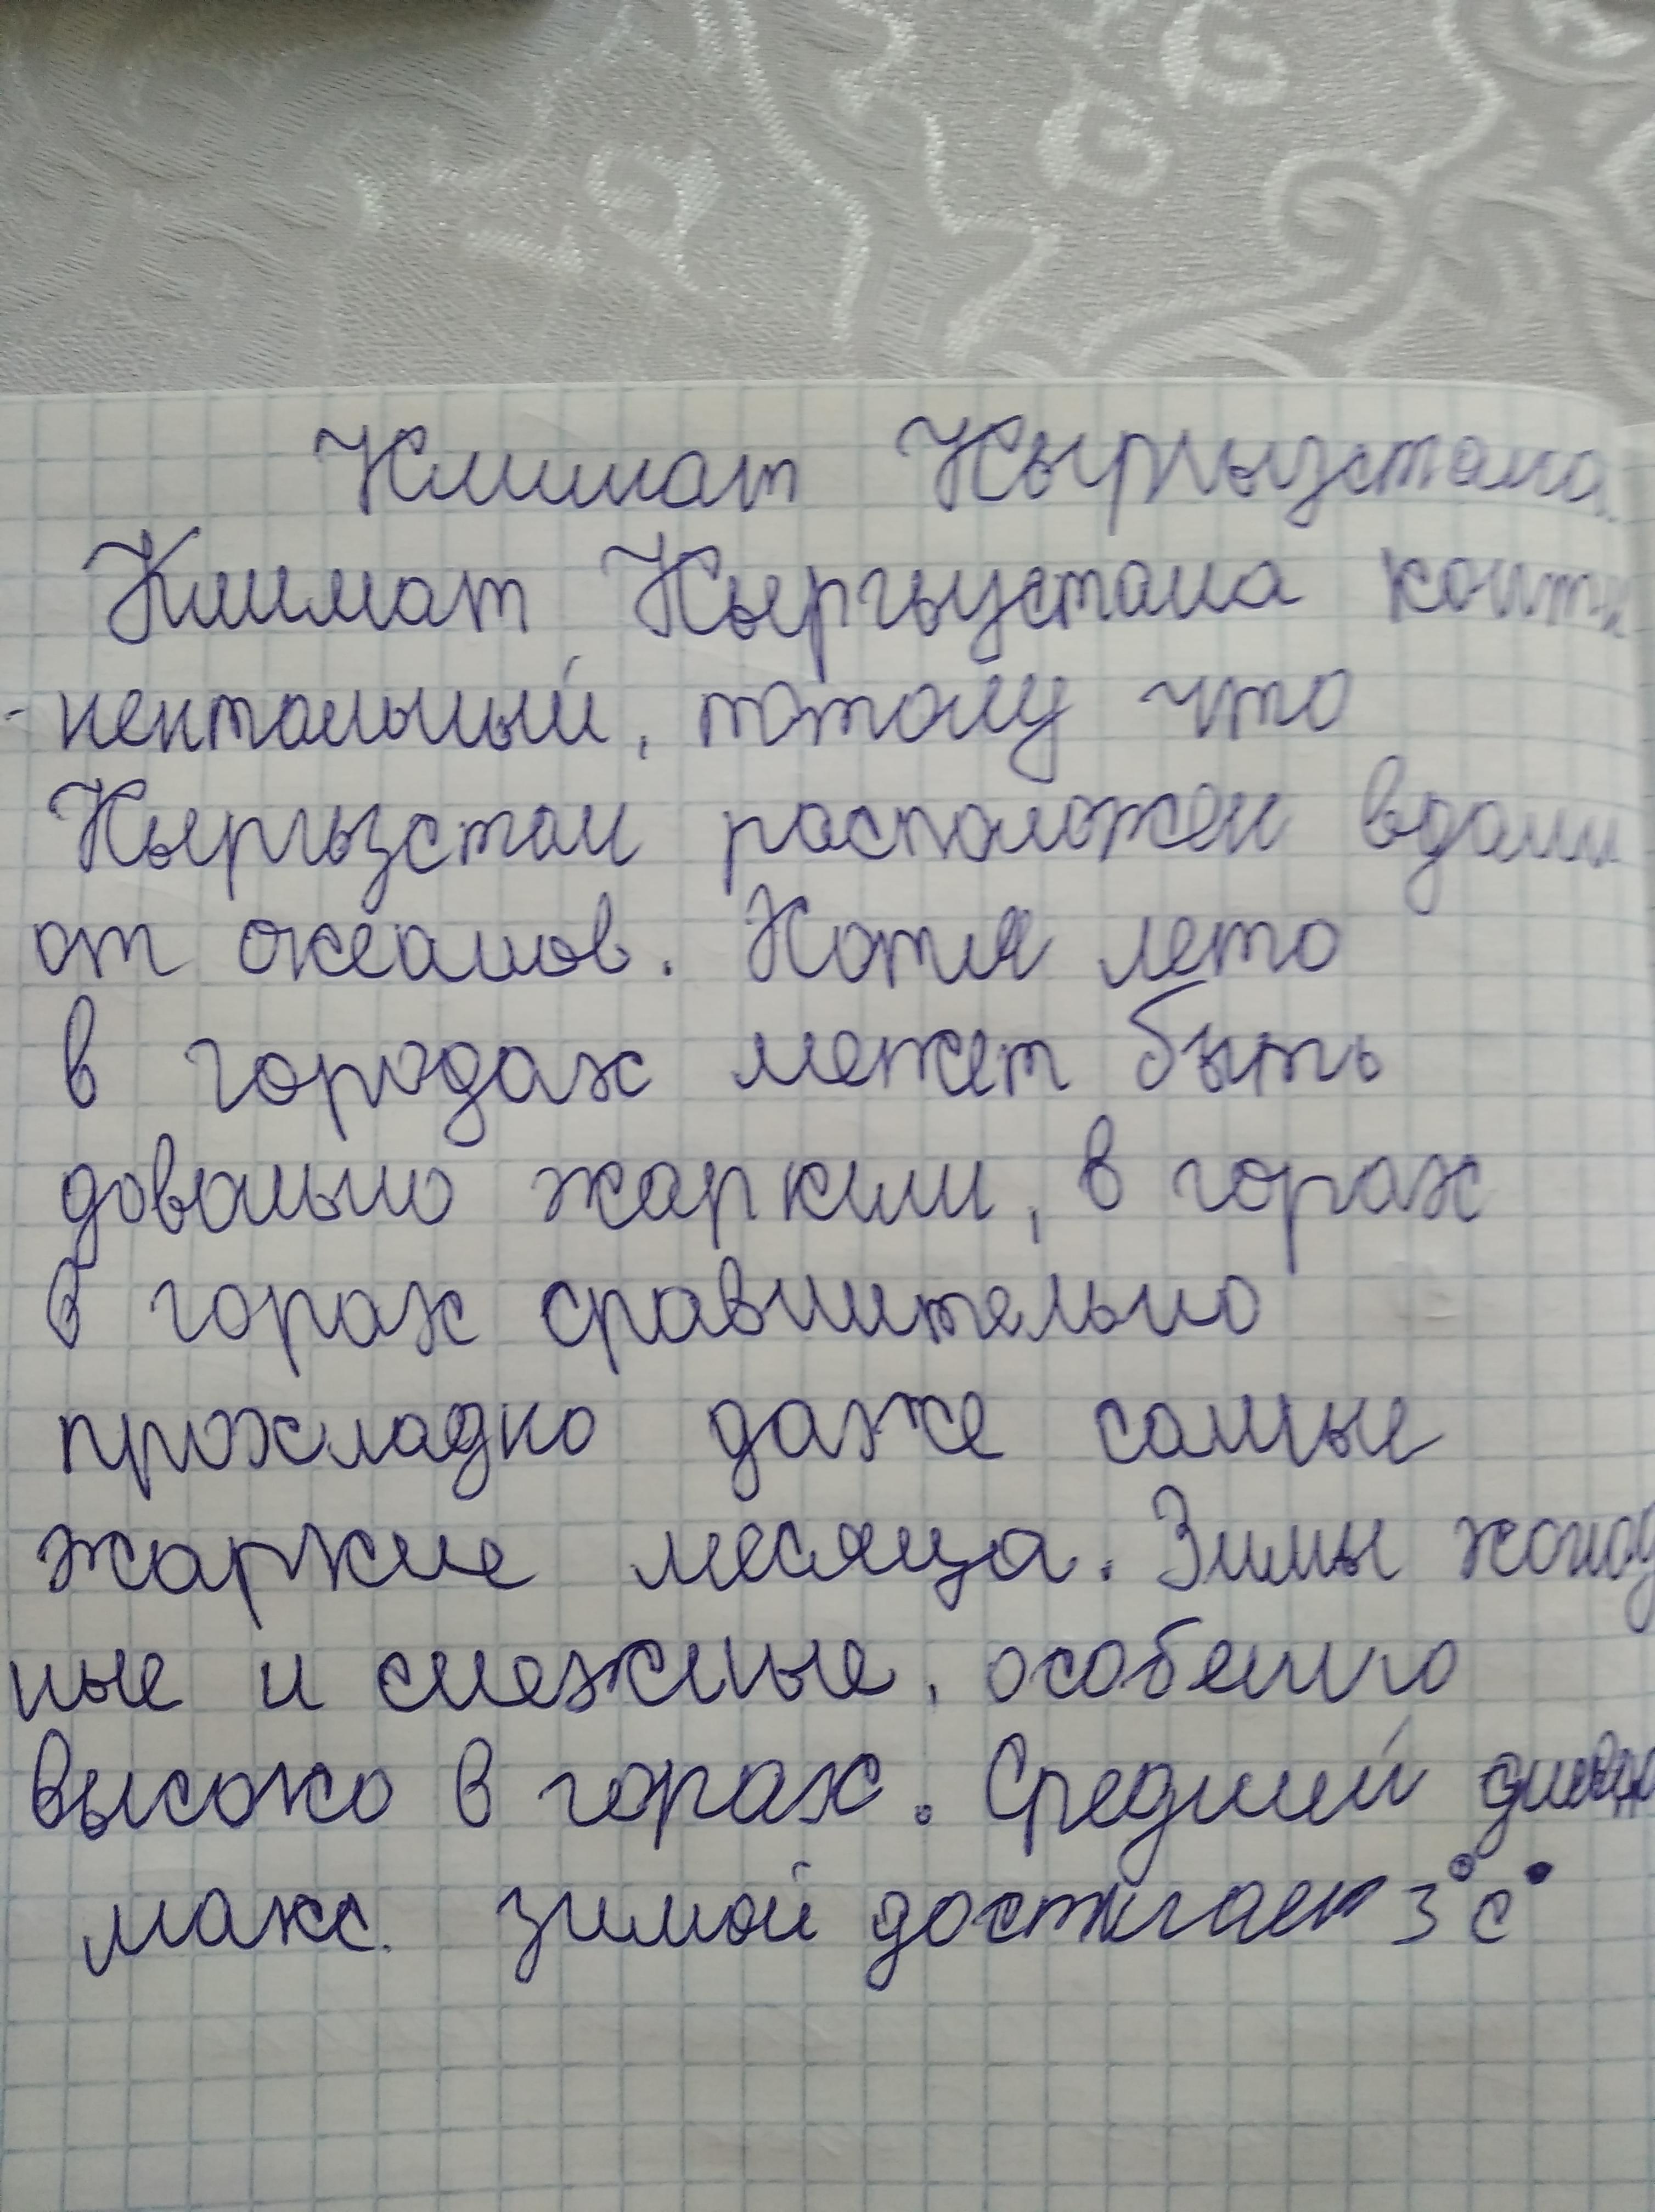 Климат Кыргызстана.
Климат Кыргызстана конти
-нентальный, потому что
Кыргызстан расположен вдали
от океанов. Хотя лето
в городах может быть
довольно жарким, в горах
в горах сравнительно
прохладно даже самые
жаркие месяца. Зимы холод
ные и снежные, особенно
высоко в горах. Средний
макс. зимой достигает 3°С